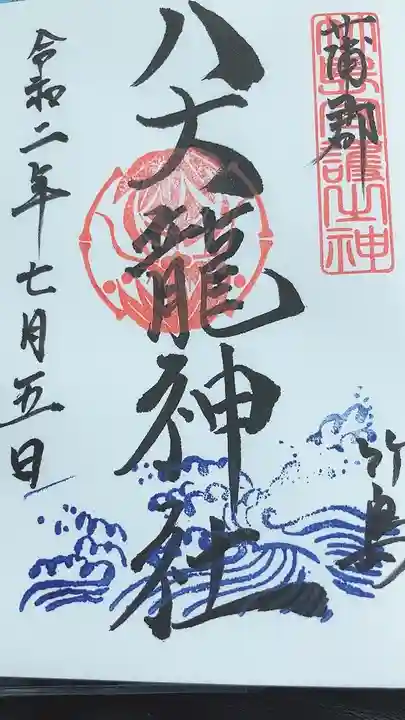 蒲郡
竹島
八大龍神社
令和二年七月五日